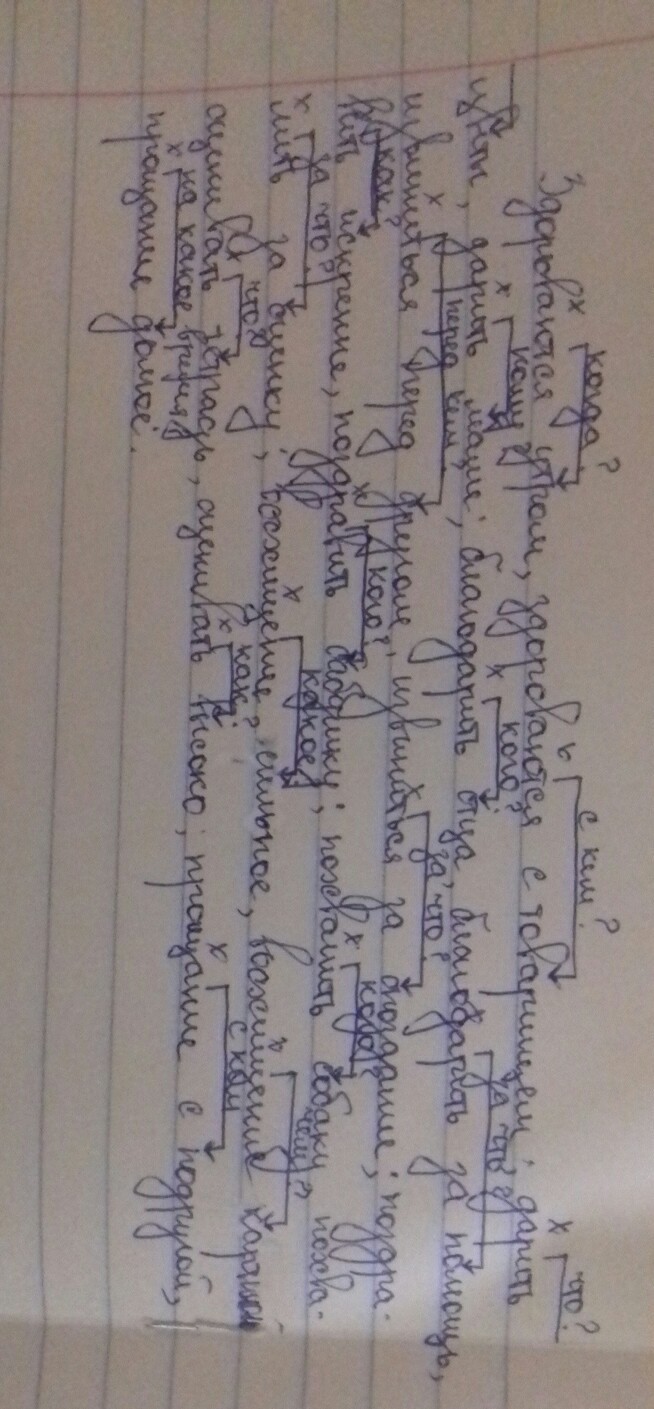 когда? с кем? что?
Здороваются утром, здороваются с товарищем; дарить
кому? кого? за что?
цветы, дарить маме; благодарить отца, благодарить за помощь,
перед кем за что?
извиниться перед другом, извиниться за опоздание; поздра-
как? кого? кого?
вить искренне, поздравить бабушку; похвалить собаку, похва-
за что? какое? чем?
лить за оценку; восхищение сильное, восхищение картиной
что? как? с кем
оценивать тетрадь, оценивать высоко; прощание с подругой,
на какое время?
прощание долгое.